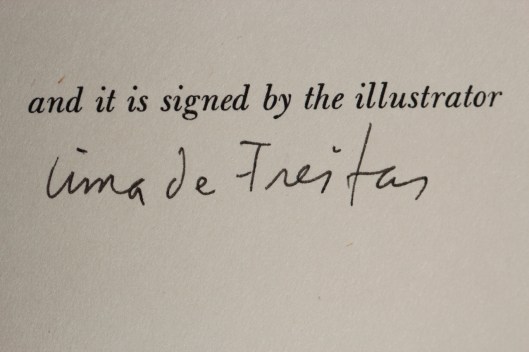 and it is signed by the illustrator
Lima de Freitas